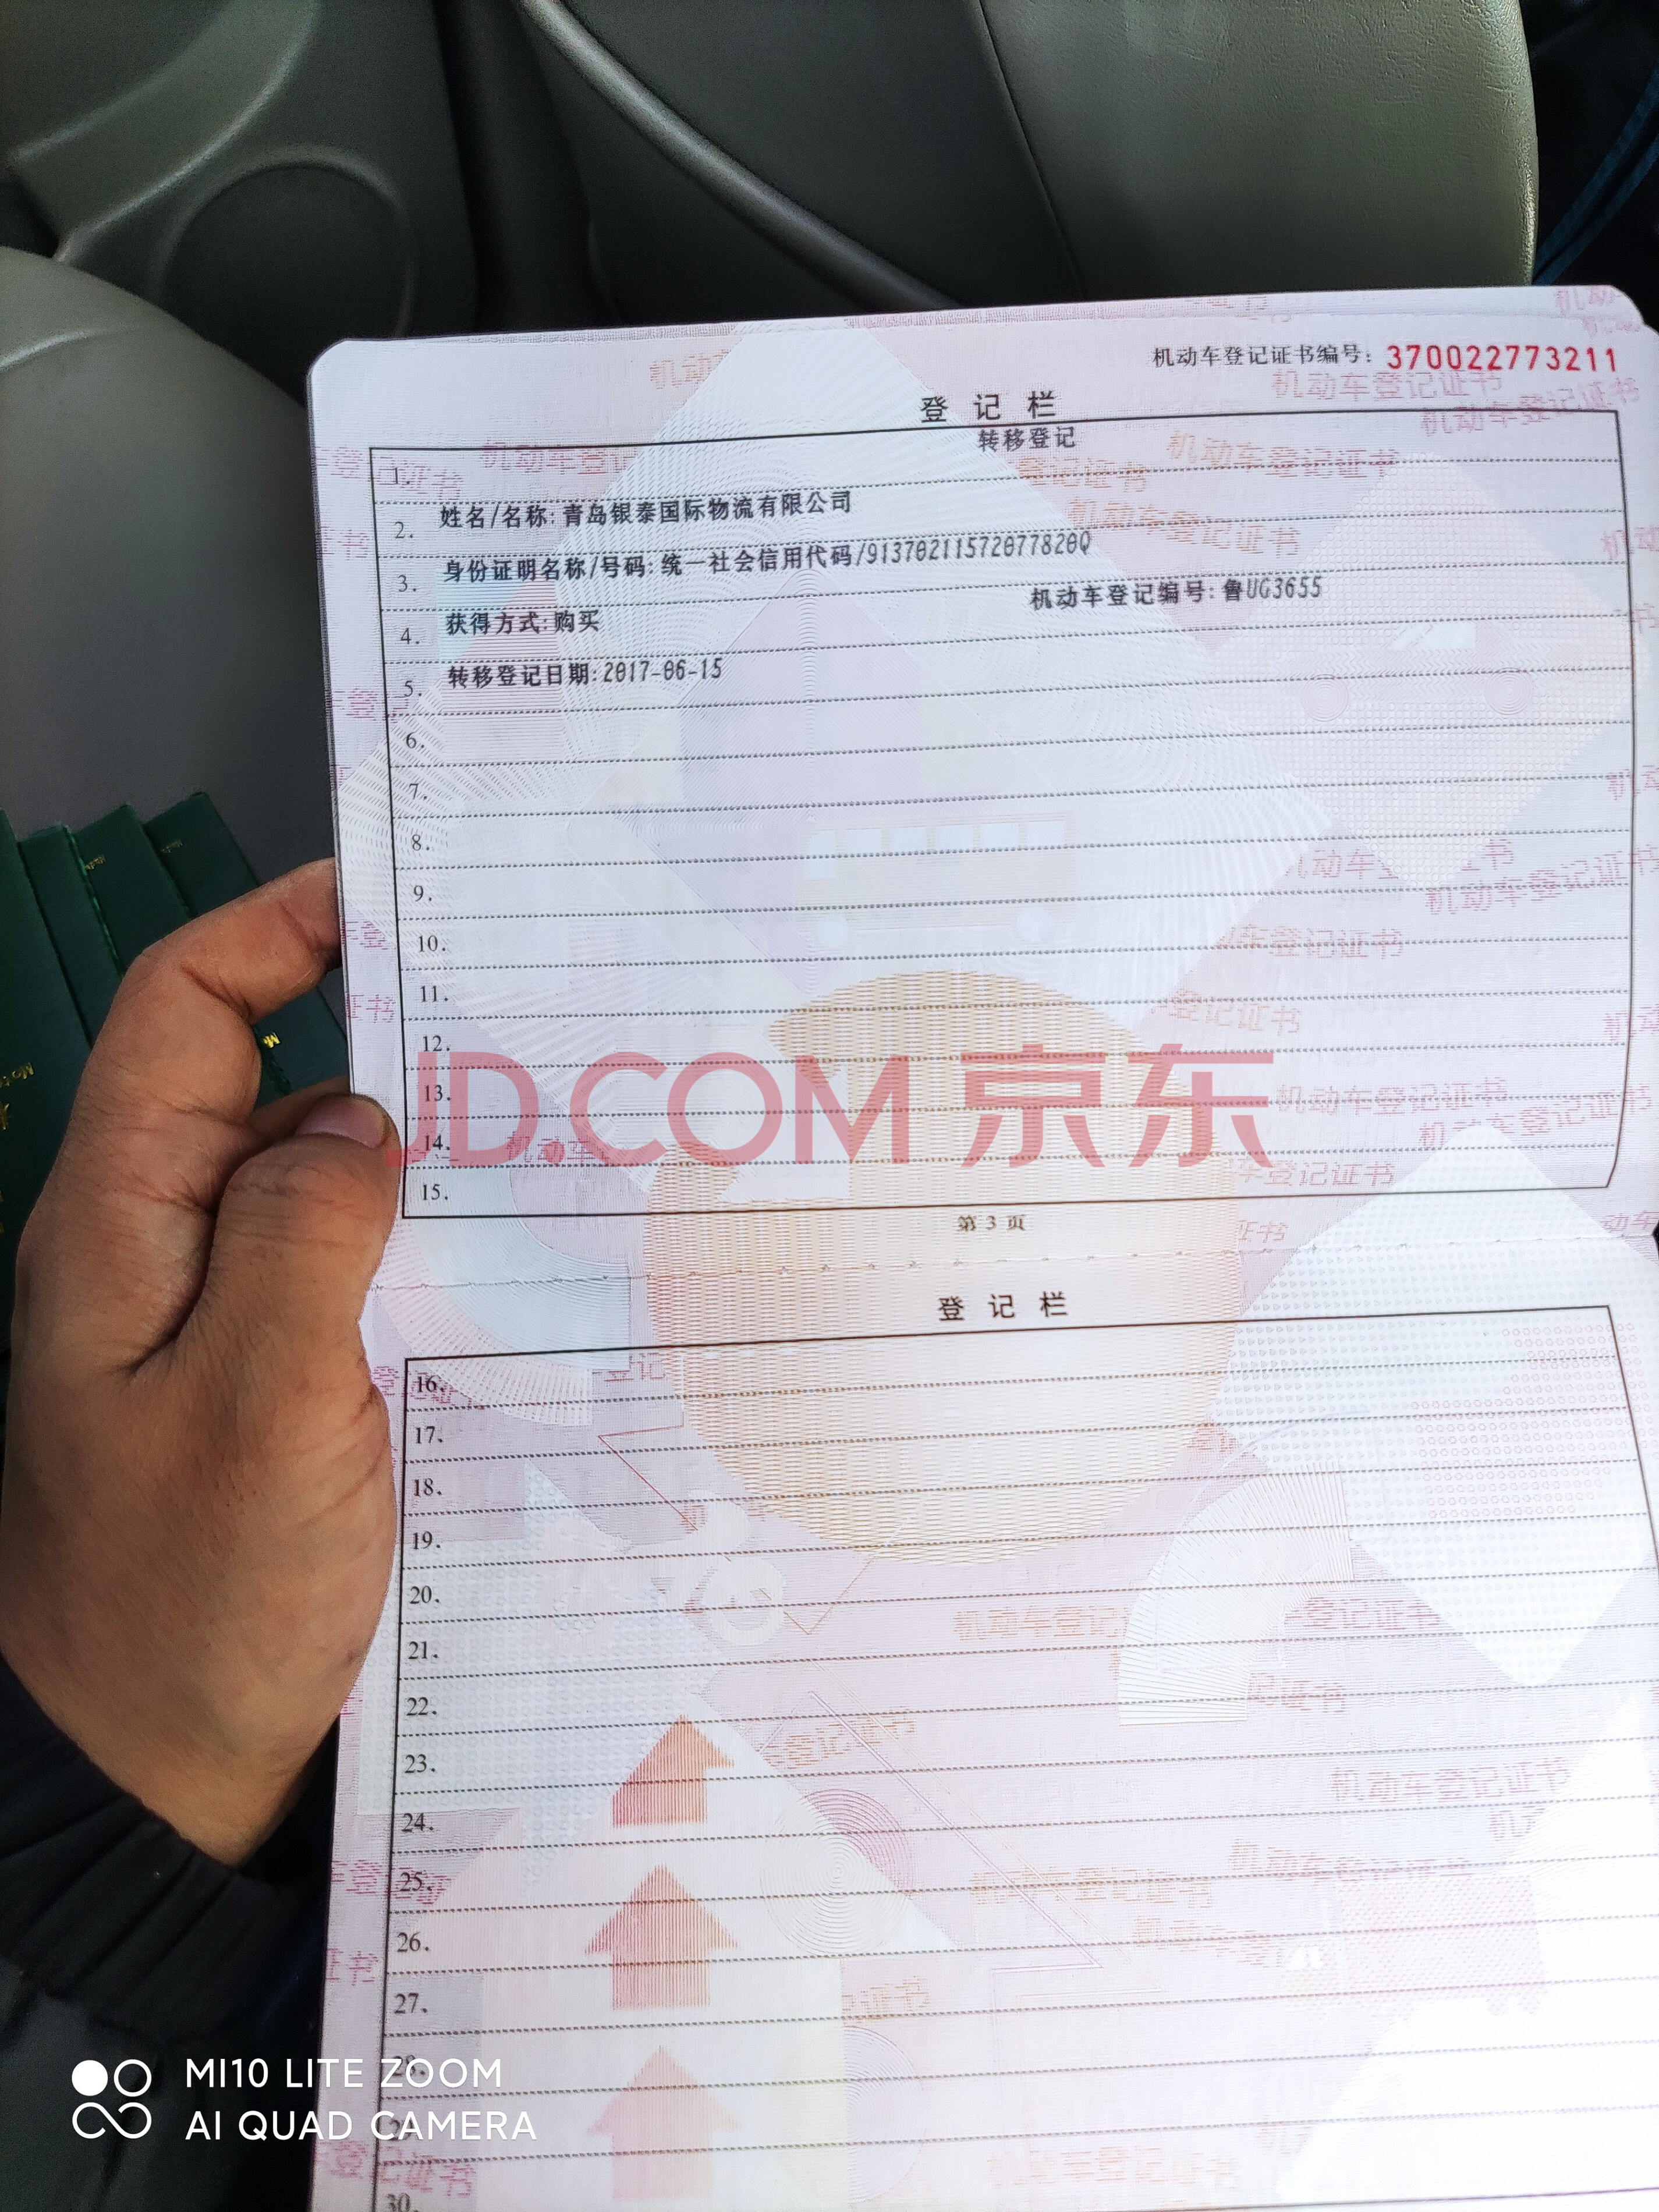 机动车登记证书编号：370022773211
登 记 栏
转移登记
1.
2. 姓名/名称:青岛银泰国际物流有限公司
3. 身份证明名称/号码:统一社会信用代码/91370211572077820Q
4. 获得方式:购买 机动车登记编号:鲁UG3655
5. 转移登记日期:2017-06-15
6.
7.
8.
9.
10.
11.
12.
13.
14.
15.
JD.COM 京东
第 3 页
登 记 栏
16.
17.
18.
19.
20.
21.
22.
23.
24.
25.
26.
27.
28.
30.
MI10 LITE ZOOM
AI QUAD CAMERA